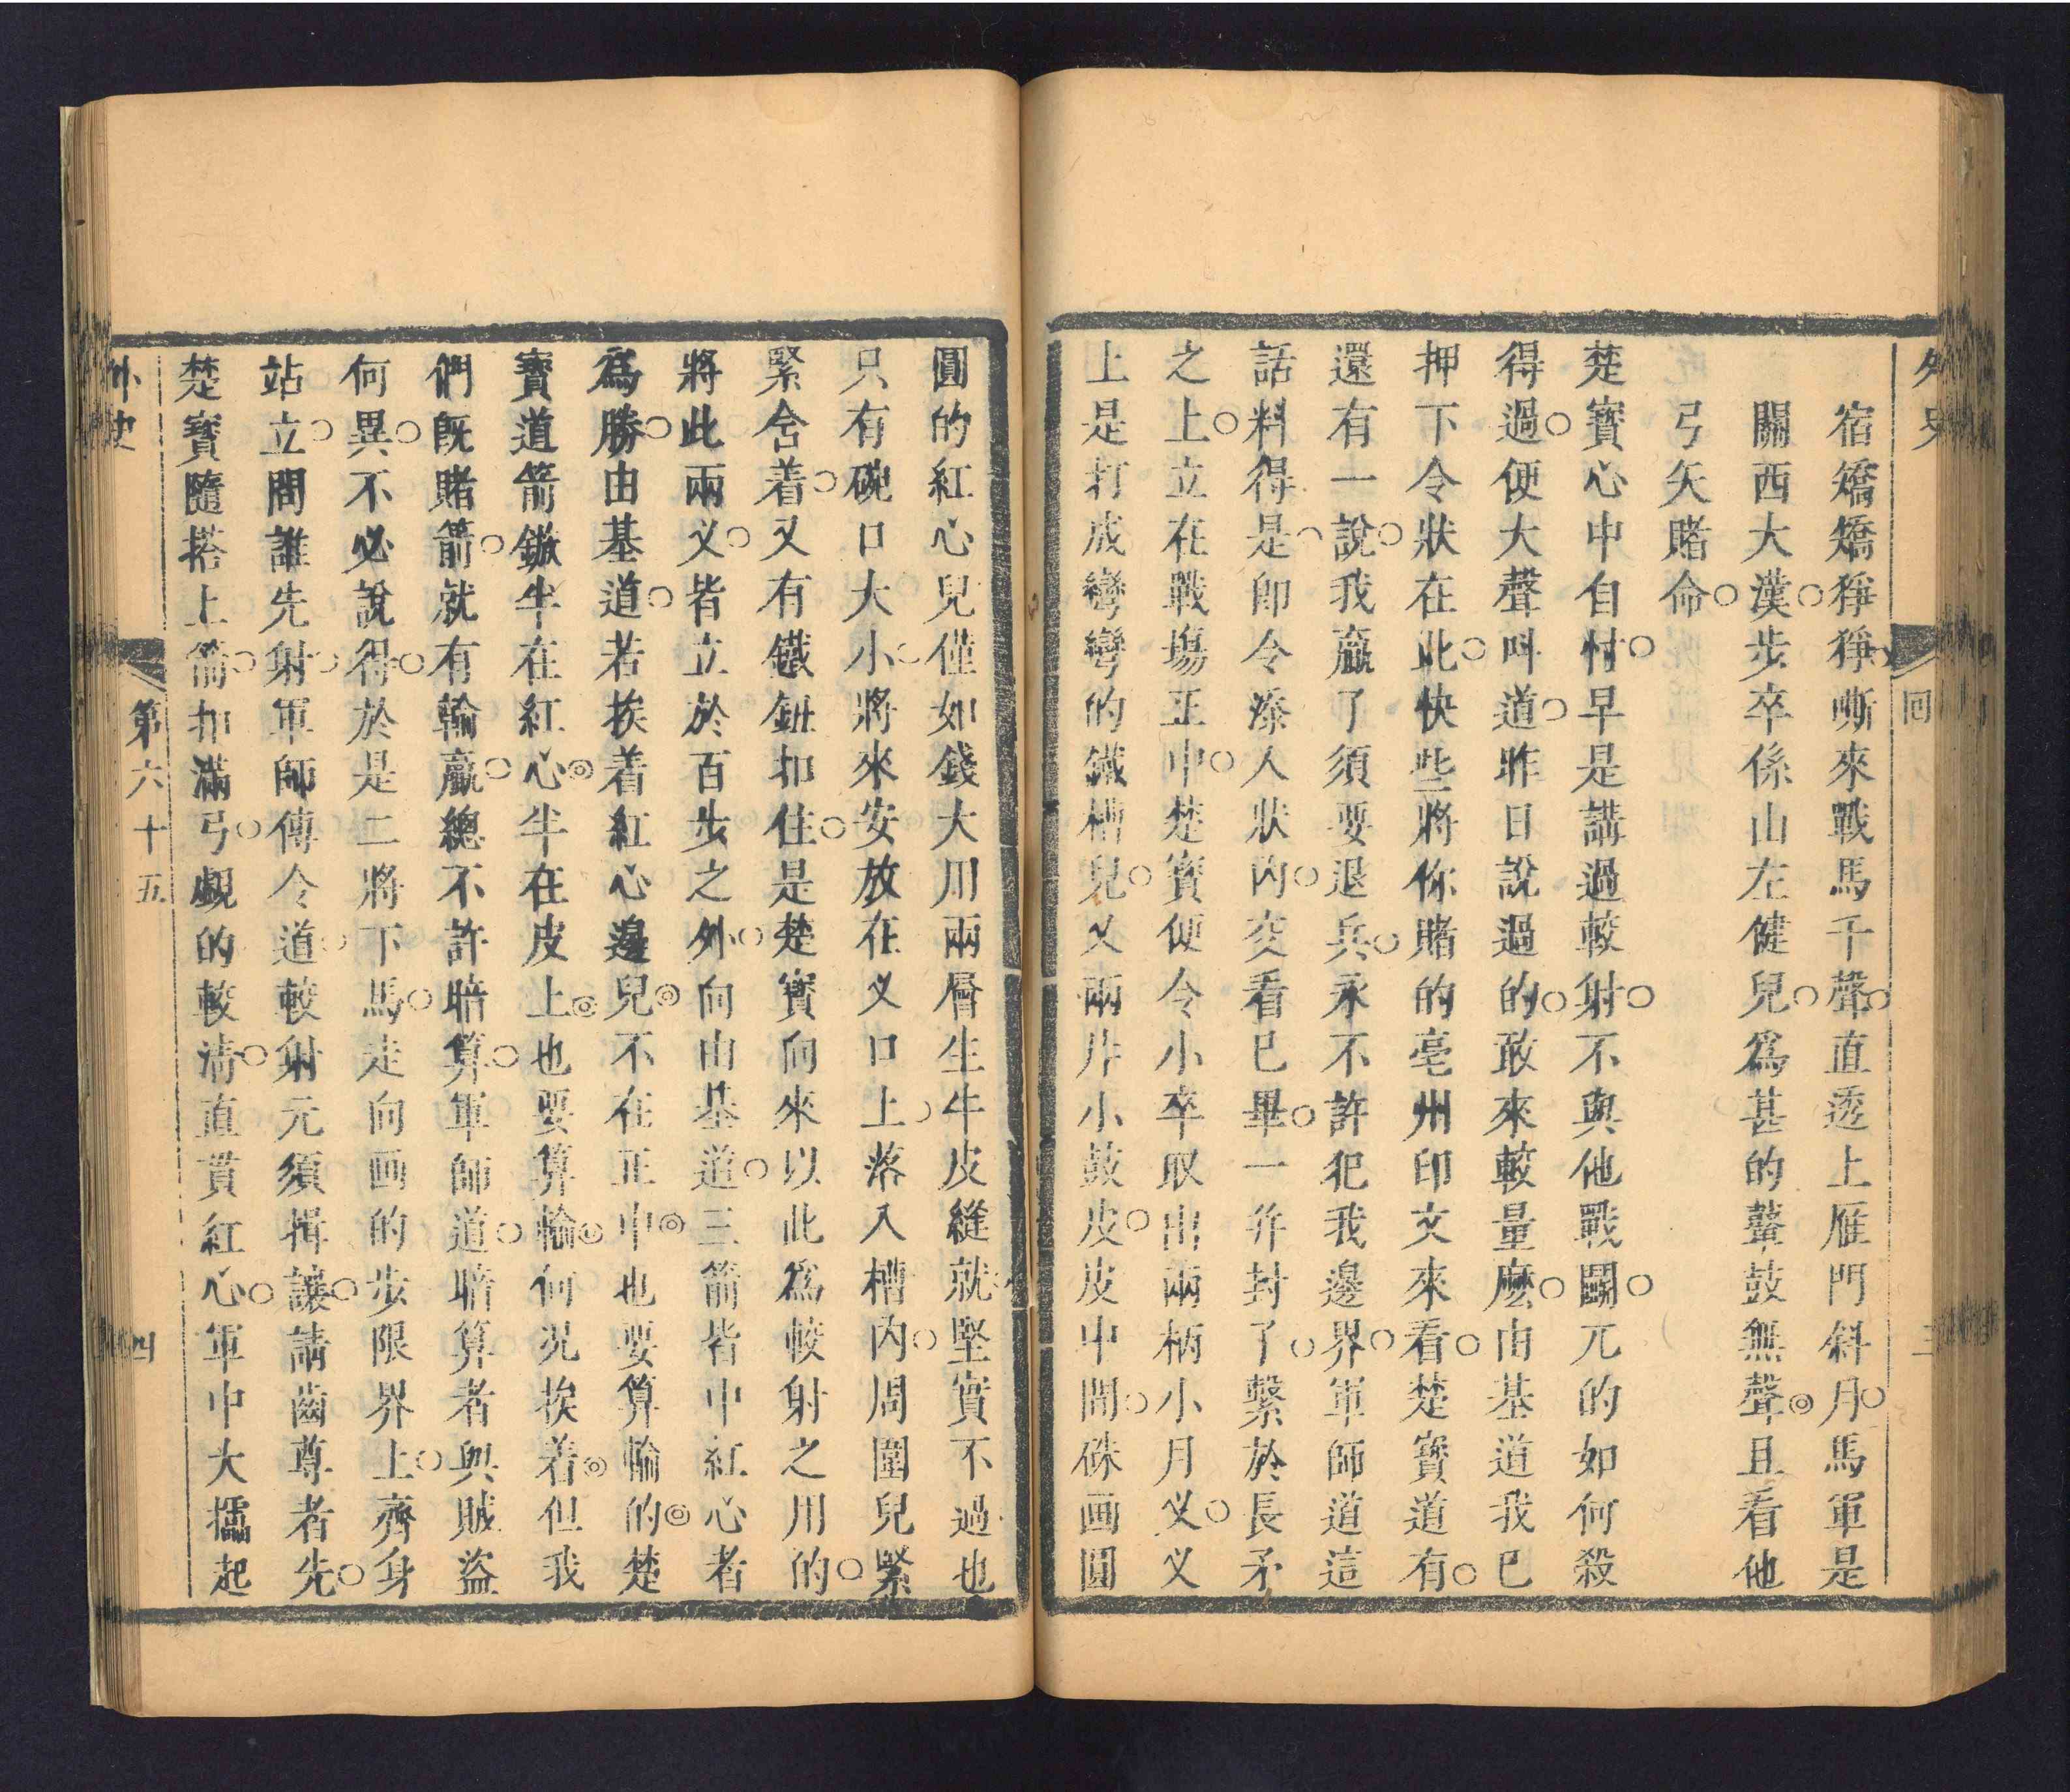 外史
回
三
宿矯矯猙猙嘶來戰馬千聲直透上雁門斜月馬軍是
關西大漢步卒係山左健兒爲甚的鼙鼓無聲且看他
弓矢賭命
楚寶心中自忖早是講過較射不與他戰鬭兀的如何殺
得過便大聲叫道昨日說過的敢來較量麽由基道我已
押下令狀在此快些將你賭的亳州印文來看楚寶道有
還有一說我贏了須要退兵永不許犯我邊界軍師道這
話料得是卽令添入狀內交看已畢一并封了繫於長矛
之上立在戰塲正中楚寶便令小卒取出兩柄小月义义
上是打成彎彎的鐵槽兒又兩片小鼓皮皮中間硃画圓
圓的紅心兒僅如錢大用兩層生牛皮縫就堅實不過也
只有碗口大小將來安放在义口上落入槽內周圍兒緊
緊含着又有鐵鈕扣住是楚寶向來以此爲較射之用的
將此兩义皆立於百步之外向由基道三箭皆中紅心者
爲勝由基道若挨着紅心邊兒不在正中也要算輸的楚
寶道箭鏃半在紅心半在皮上也要算輸何况挨着但我
們旣賭箭就有輸贏總不許暗算軍師道暗算者與賊盜
何異不必說得於是二將下馬走向画的步限界上齊身
站立問誰先射軍師傳令道較射元須揖讓請齒尊者先
楚寶隨搭上箭扣滿弓覷的較淸直貫紅心軍中大擂起
外史
第六十五
四